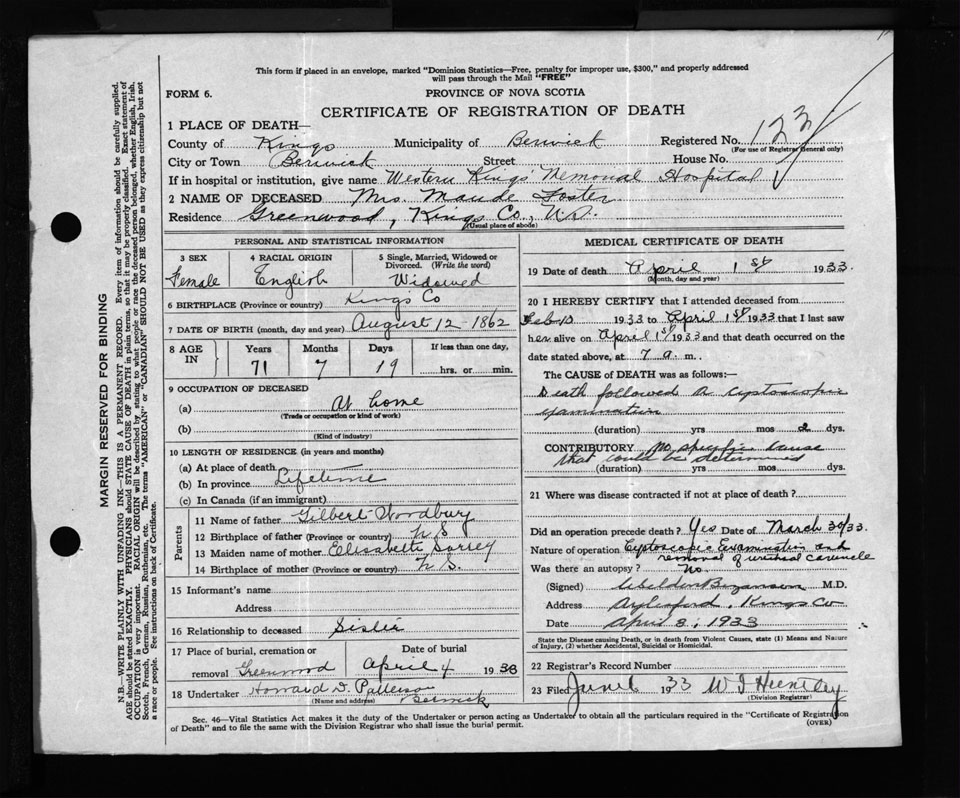 This form if placed in an envelope, marked "Dominion Statistics—Free, penalty for improper use, $300," and properly addressed
will pass through the Mail "FREE"
FORM 6.
PROVINCE OF NOVA SCOTIA
CERTIFICATE OF REGISTRATION OF DEATH
1 PLACE OF DEATH—
County of Kings Municipality of Berwick Registered No. 123
(For use of Registrar General only)
City or Town Berwick Street House No.
If in hospital or institution, give name Western Kings Memorial Hospital
2 NAME OF DECEASED Mrs. Maude Foster
Residence Greenwood, Kings Co, N.S.
(Usual place of abode)
PERSONAL AND STATISTICAL INFORMATION
3 SEX 4 RACIAL ORIGIN 5 Single, Married, Widowed or Divorced. (Write the word)
Female English Widowed
6 BIRTHPLACE (Province or country) Kings Co
7 DATE OF BIRTH (month, day and year) August 12 - 1862
8 AGE IN Years Months Days If less than one day,
71 7 19 hrs. or min.
9 OCCUPATION OF DECEASED
(a) At home
(Trade or occupation or kind of work)
(b)
(Kind of industry)
10 LENGTH OF RESIDENCE (in years and months)
(a) At place of death
(b) In province Lifetime
(c) In Canada (if an immigrant)
Parents
11 Name of father Gilbert Woodbury
12 Birthplace of father (Province or country) N S
13 Maiden name of mother
14 Birthplace of mother (Province or country) N S.
15 Informant's name
Address
16 Relationship to deceased Sister
17 Place of burial, cremation or removal Greenwood Date of burial April 4 1933
18 Undertaker Howard D. Patterson
(Name and address) Berwick
MEDICAL CERTIFICATE OF DEATH
19 Date of death April 1st 1933.
(Month, day and year)
20 I HEREBY CERTIFY that I attended deceased from
Feb 10 1933 to April 1st 1933 that I last saw
her alive on April 1st 1933 and that death occurred on the
date stated above, at 7 a. m.
The CAUSE of DEATH was as follows:—
Death followed a cystoscopic
examination
(duration) yrs mos 2 dys.
CONTRIBUTORY No specific cause
that could be determined
(duration) yrs mos dys.
21 Where was disease contracted if not at place of death?
Did an operation precede death? Yes Date of March 30/33.
Nature of operation Cystoscopic Examination and
removal of urethral caruncle
Was there an autopsy? No.
(Signed) M.D.
Address Aylesford, Kings Co
Date April 3, 1933
State the Disease causing Death, or in death from Violent Causes, state (1) Means and Nature
of Injury, (2) whether Accidental, Suicidal or Homicidal.
22 Registrar's Record Number
23 Filed June 1 1933 W J Huntley
(Division Registrar)
Sec. 46—Vital Statistics Act makes it the duty of the Undertaker or person acting as Undertaker to obtain all the particulars required in the "Certificate of Registration
of Death" and to file the same with the Division Registrar who shall issue the burial permit.
(OVER)
MARGIN RESERVED FOR BINDING
N.B.—WRITE PLAINLY WITH UNFADING INK—THIS IS A PERMANENT RECORD. Every item of information should be carefully supplied.
AGE should be stated EXACTLY. PHYSICIANS should STATE CAUSE OF DEATH in plain terms, so that it may be properly classified. Exact statement of
OCCUPATION is very important. RACIAL ORIGIN will be described by stating to what people or race the deceased person belonged, whether English, Irish,
Scotch, French, German, Russian, Ruthenian, etc. The terms "AMERICAN" or "CANADIAN" SHOULD NOT BE USED as they express citizenship but not
a race or people. See instructions on back of Certificate.